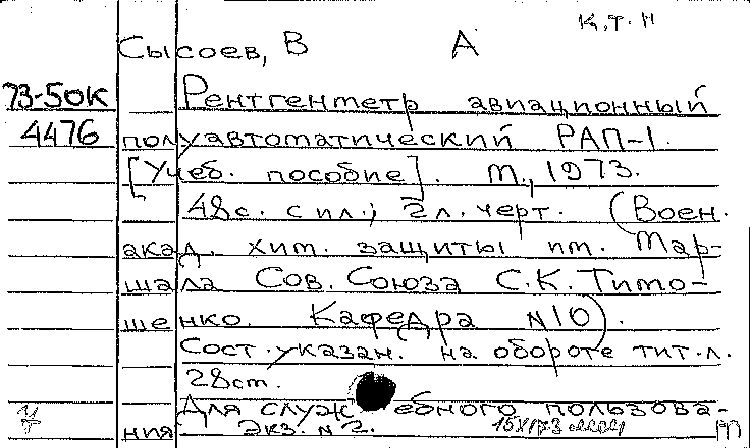 к.т.н
Сысоев, В А
73-50К Рентгенметр авиационный
4476 полуавтоматический РАП-1.
[Учеб. пособие]. М., 1973.
48с. с ил.; 2л. черт. (Воен.
акад. хим. защиты им. Мар-
шала Сов. Союза С.К. Тимо-
шенко. Кафедра N10).
Сост. указан. на обороте тит. л.
28см.
Для служебного пользова-
ния Экз. N 2. 15X173